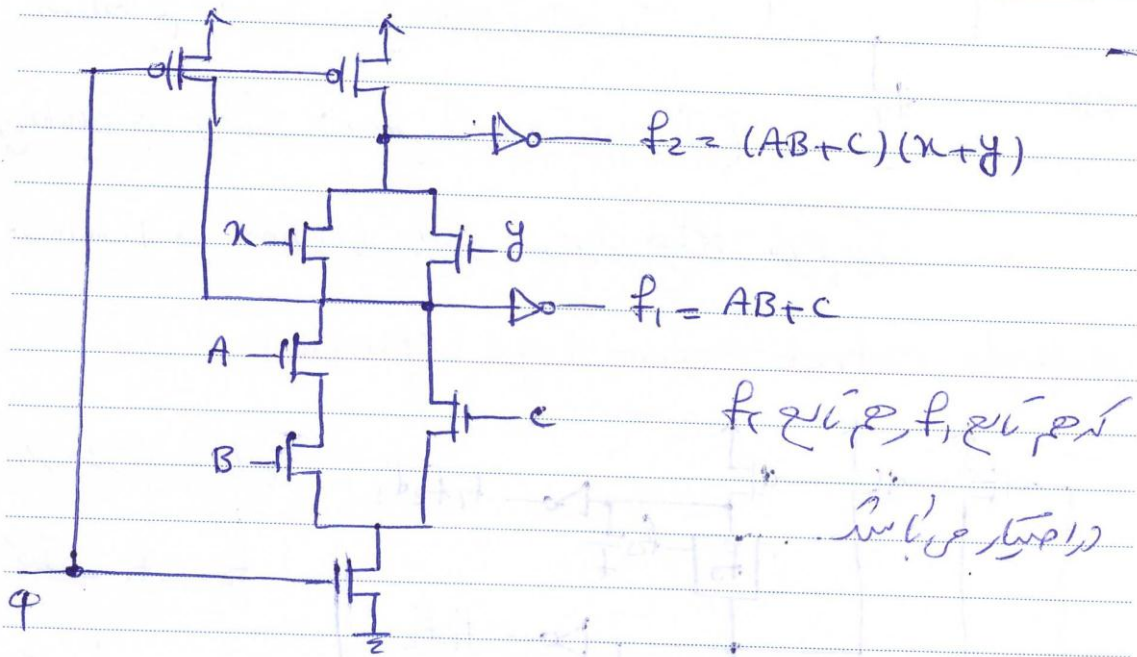 f₂ = (AB+C)(x+y)
x
y
f₁ = AB+C
A
C
که هم تابع f₁ و هم تابع f₂
B
در اختیار می‌باشد.
φ